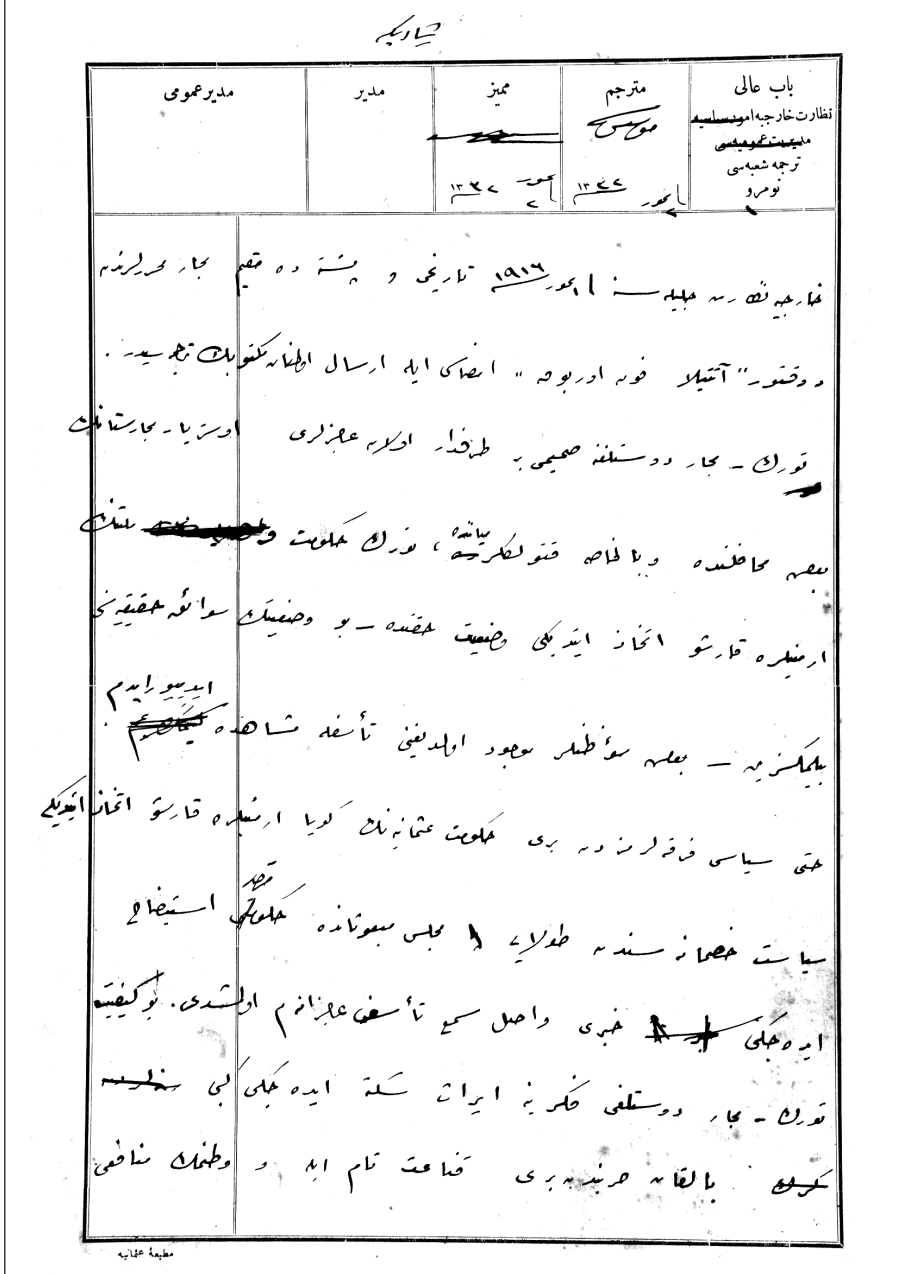 باب عالی
نظارت خارجیه امور سیاسیه
مدیریت عمومیه‌سی
ترجمه شعبه‌سی
نومرو
مترجم
١٣٣٢
ممیز
تموز
١٣٣٢
مدیر
مدیر عمومی
خارجیه نظارت جلیله سنه ١ تموز ١٩١٦ تاریخی و پشته ده مقیم مجار محررلرندن
دوقتور "آتتیلا فون اوربوق" امضاسی ایله ارسال اولنان مکتوبك ترجمه سیدر .
تورك - مجار دوستلغنه صمیمی بر طرفدار اولان عاجزلری اوستریا - مجارستانك
بعض محافلنده وبالخاصه قتولیکلر میاننده ، تورك حکومت و ملتنك
ارمنیلره قارشو اتخاذ ایتدیکی وضعیت حقنده - بو وضعیتك سوائق حقیقیه سنی
بیلمکسزین - بعض سؤظنلر موجود اولدیغنی تأسفله مشاهده ایدییور ایدم .
حتی سیاسی فرقه لرمزدن بری حکومت عثمانیه نك کویا ارمنیلره قارشو اتخاذ ایتدیکی
سیاست خصمانه سندن طولایی مجلس مبعوثانده حکومتدن استیضاح
ایده جکی خبری واصل سمع تأسف عاجزانه م اولمشدی . بو کیفیتك
تورك - مجار دوستلغی فکرینه ایراث سکته ایده جکی کبی
بالقان حربندن بری قناعت تام ایله و وطنمك منافعی
مطبعهٔ عثمانیه